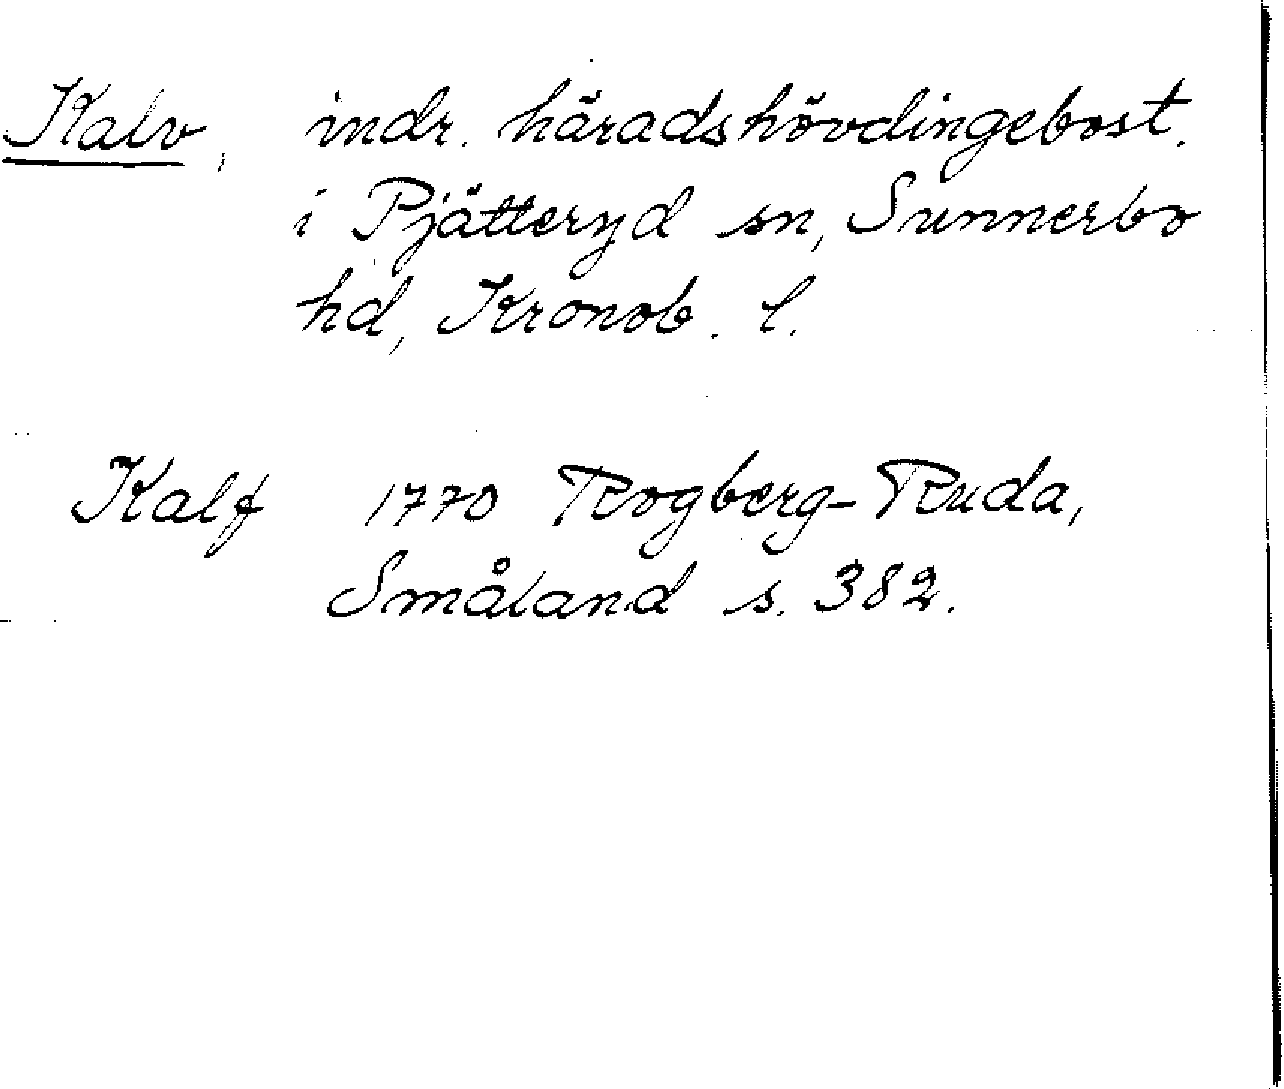 Kalv, indr. häradshövdingebost.
i Pjätteryd sn, Sunnerbo
hd, Kronob. l.
Kalf 1770 Rogberg-Ruda,
Småland s. 382.